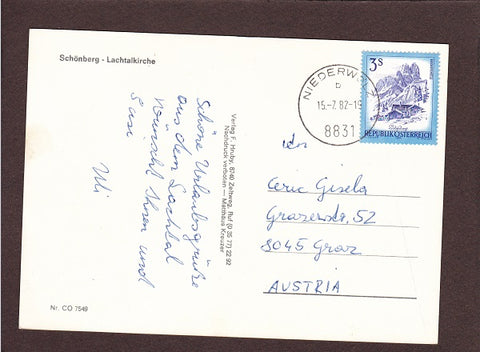 Schönberg - Lachtalkirche
Schöne Urlaubsgrüße
aus dem Lachtal
wünscht Ihnen und
Susi
Uli
Verlag F. Hruby, 8740 Zeltweg, Ruf (0 35 77) 22 92
Nachdruck verboten — Matthäus Kreuzer
NIEDERW
b
15.-7.82-19
8831
3 S
REPUBLIK ÖSTERREICH
An
Ceric Gisela
Grazerstr. 52
8045 Graz
AUSTRIA
Nr. CO 7549